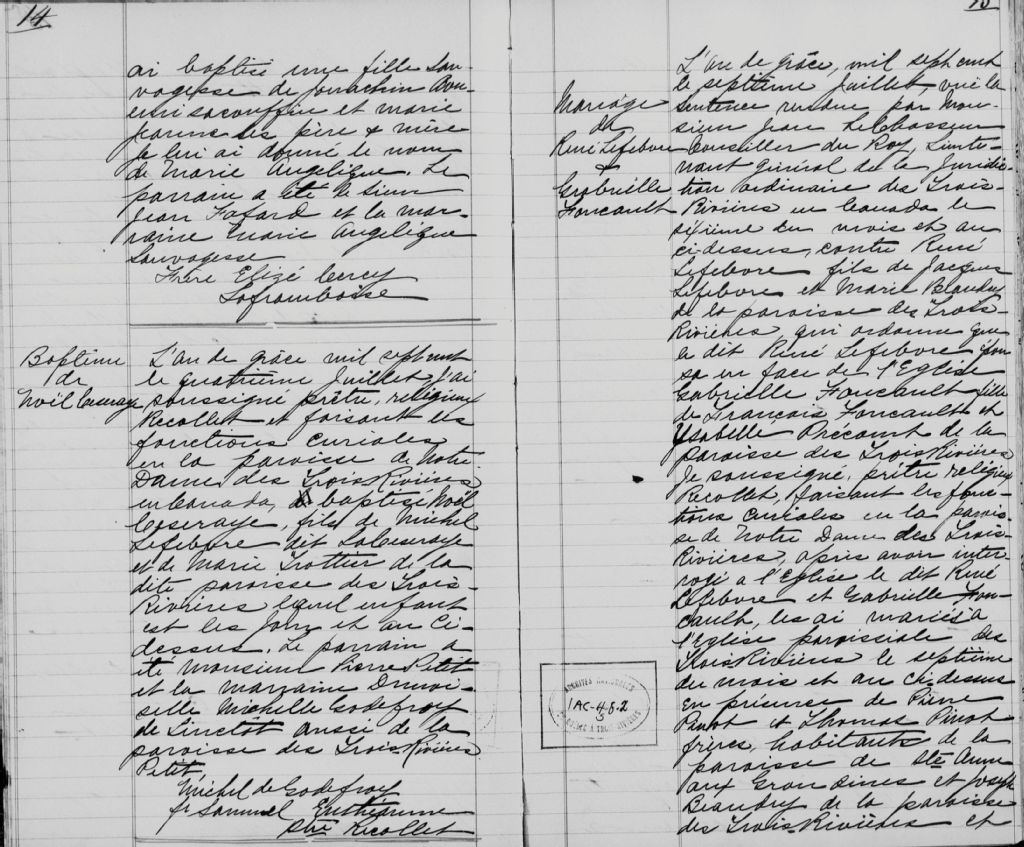 14
ai baptisé une fille Sau-
vagesse de
et marie
Jeanne ses père & mère
Je lui ai donné le nom
de Marie Angelique. Le
parrain a été le sieur
Jean Fafard et la mar-
raine Marie Angelique
Sauvagesse
Frère Elizé Cercy
Laframboise
Baptême
de
Noël Ceseraye
L'an de grâce mil sept cent
le quatrième Juillet, j'ai
soussigné prêtre, religieux
Recollet et faisant les
fonctions curiales
en la paroisse de Notre-
Dame des Trois Rivières
en Canada, baptisé Noël
Ceseraye, fils de Michel
Lefebvre dit LaCeseraye
et de Marie Trottier de la
dite paroisse des Trois-
Rivières lequel enfant
est les jour et an ci-
dessus. Le parrain a
été Monsieur Pierre Petit
et la marraine Demoi-
selle Michelle Godefroy
de Linctôt aussi de la
paroisse des Trois Rivières
Petit,
Michel de Godefroy
fr Samuel
Ptre Recollet
15
Mariage
de
René Lefebvre
&
Gabrielle
Foucault
L'an de grâce, mil sept cent
le septième Juillet vue la
sentence rendue par Mon-
sieur Jean LeChasseur
Conseiller du Roy, Lieute-
nant général de la Juridic-
tion ordinaire des Trois-
Rivières en Canada le
sixième du mois et an
ci-dessus, contre René
Lefebvre fils de Jacques
Lefebvre et Marie Beaudry
de la paroisse des Trois-
Rivières, qui ordonne que
le dit René Lefebvre épou-
sa en face de l'Eglise
Gabrielle Foucault fille
de François Foucault et
Ysabelle Précourt de la
paroisse des Trois Rivières
Je soussigné, prêtre religieux
Recollet, faisant les fonc-
tions curiales en la parois-
se de Notre Dame des Trois-
Rivières, après avoir inter-
rogé a l'Eglise le dit René
Lefebvre et Gabrielle Fou-
cault, les ai mariés à
l'Eglise paroissiale des
Trois Rivières le septième
du mois et an ci-dessus
En présence de Pierre
Pinot et Thomas Pinot
frères, habitants de la
paroisse de Ste Anne
aux Grondines et Joseph
Beaudry de la paroisse
des Trois-Rivières et
ARCHIVES NATIONALES
1AC-48-2
5